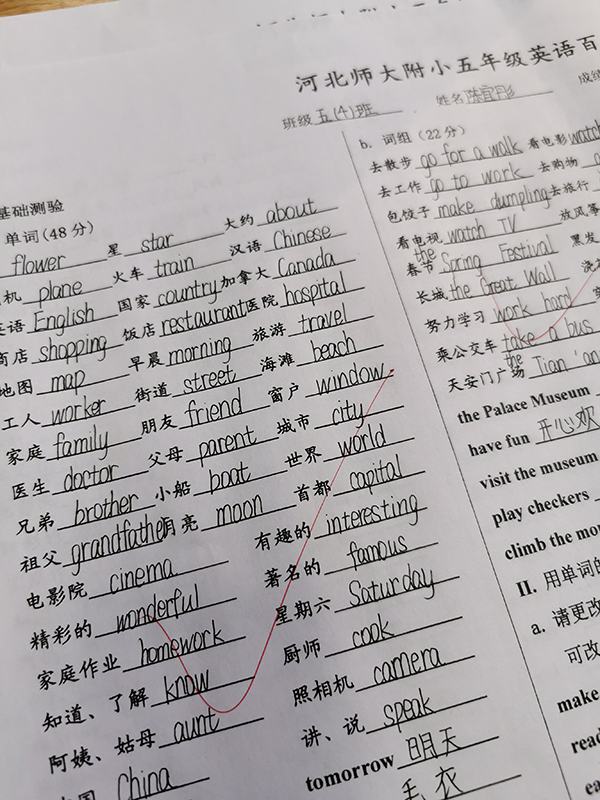 河北师大附小五年级英语百
班级 五(4)班 姓名 陈宜彤 成绩
基础测验
单词(48分)
flower 星 star 大约 about
机 plane 火车 train 汉语 Chinese
英语 English 国家 country 加拿大 Canada
商店 shopping 饭店 restaurant 医院 hospital
地图 map 早晨 morning 旅游 travel
工人 worker 街道 street 海滩 beach
家庭 family 朋友 friend 窗户 window
医生 doctor 父母 parent 城市 city
兄弟 brother 小船 boat 世界 world
祖父 grandfather 月亮 moon 首都 capital
电影院 cinema 有趣的 interesting
精彩的 wonderful 著名的 famous
家庭作业 homework 星期六 Saturday
知道、了解 know 厨师 cook
阿姨、姑母 aunt 照相机 camera
国 China 讲、说 speak
tomorrow 明天
毛衣
b. 词组(22分)
去散步 go for a walk 看电影 watch
去工作 go to work 去购物
包饺子 make dumpling 去旅行
看电视 watch TV 放风筝
春节 the Spring Festival 黑发
长城 the Great Wall 浇
努力学习 work hard
乘公交车 take a bus
天安门广场 the Tian'an
the Palace Museum
have fun 开心欢
visit the museum
play checkers
climb the mo
II. 用单词的
a. 请更改
可改
make
read
ea